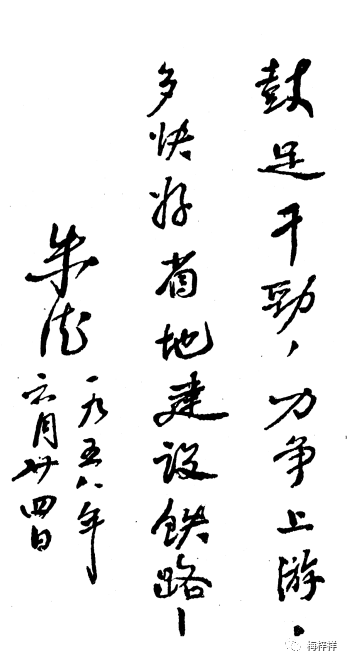 鼓足干勁，力争上游，
多快好省地建設铁路！
朱德
一九五八年
六月廿四日
梅梓祥